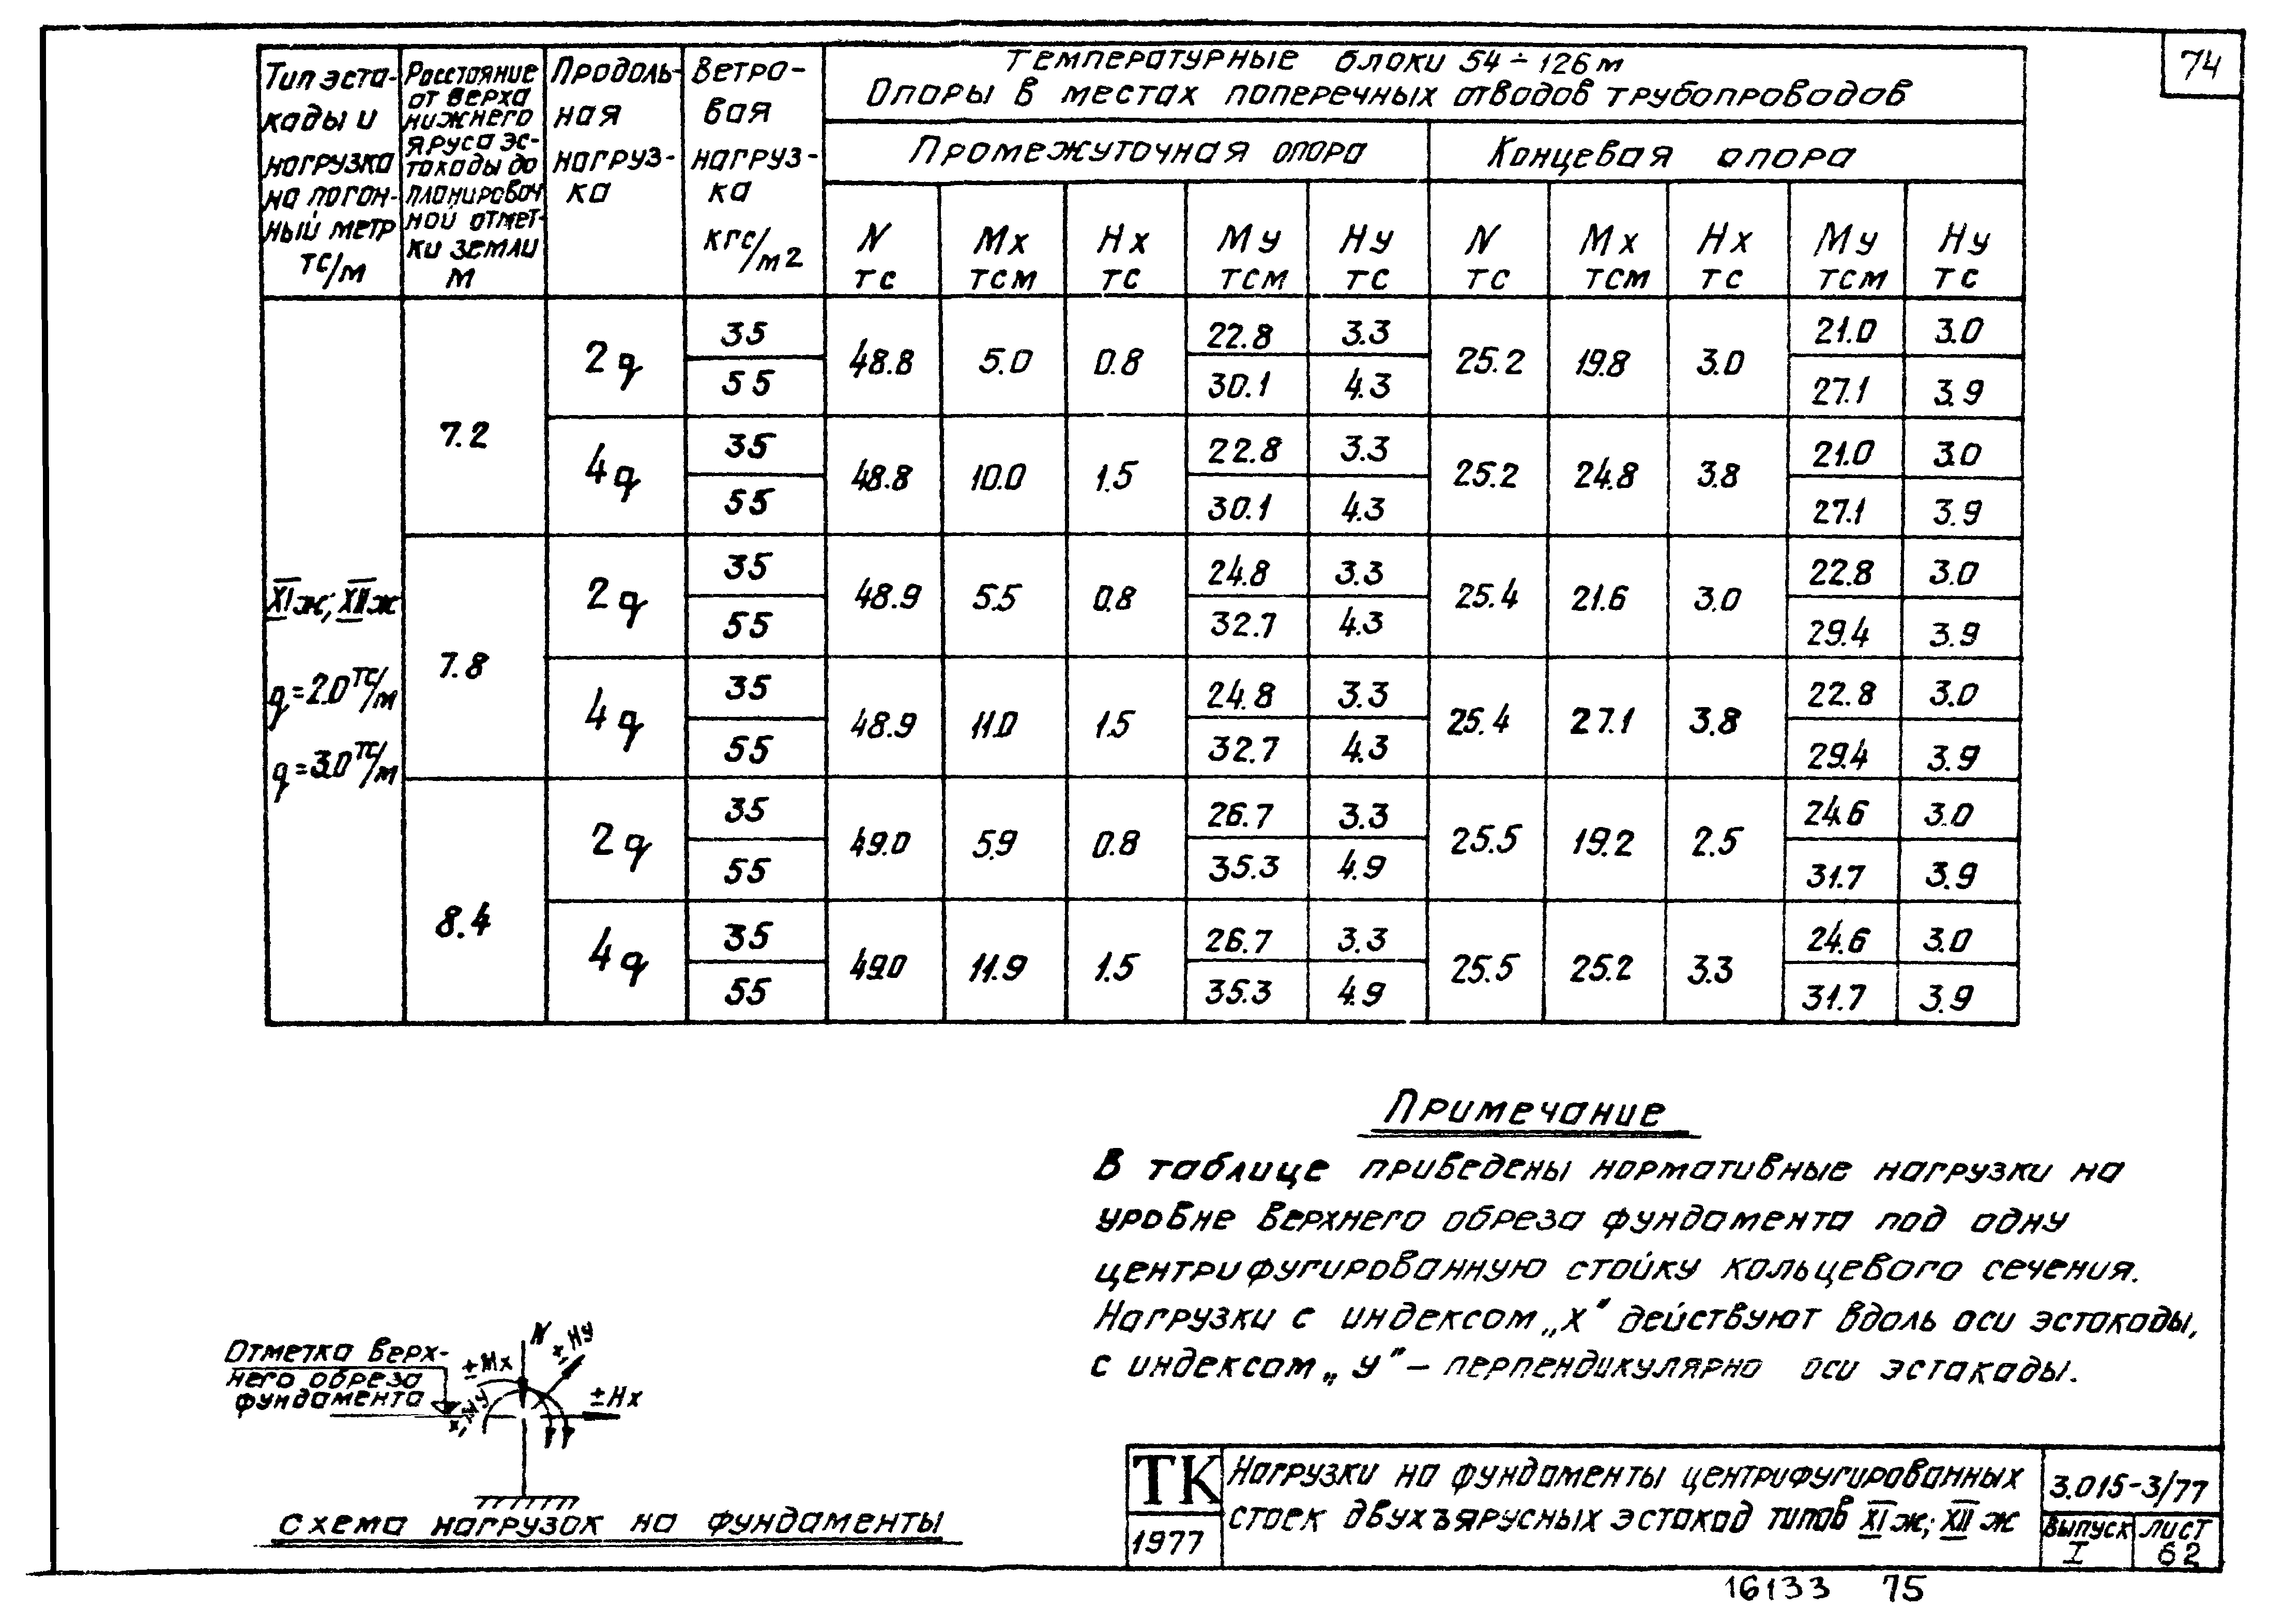 74
Температурные блоки 54÷126м
Опоры в местах поперечных отводов трубопроводов
Тип эста-
кады и
нагрузка
на погон-
ный метр
тс/м
Расстояние
от верха
нижнего
яруса эс-
токады до
планировоч
ной отмет-
ки земли
м
Продоль-
ная
нагруз-
ка
Ветро-
вая
нагруз-
ка
кгс/м2
Промежуточная опора
Концевая опора
N тс
Мх тсм
Нх тс
Му тсм
Ну тс
N тс
Мх тсм
Нх тс
Му тсм
Ну тс
XIж; XIIж
q=2.0тс/м
q=3.0тс/м
7.2
2q 35 48.8 5.0 0.8 22.8 3.3 25.2 19.8 3.0 21.0 3.0
55 30.1 4.3 27.1 3.9
4q 35 48.8 10.0 1.5 22.8 3.3 25.2 24.8 3.8 21.0 3.0
55 30.1 4.3 27.1 3.9
7.8
2q 35 48.9 5.5 0.8 24.8 3.3 25.4 21.6 3.0 22.8 3.0
55 32.7 4.3 29.4 3.9
4q 35 48.9 11.0 1.5 24.8 3.3 25.4 27.1 3.8 22.8 3.0
55 32.7 4.3 29.4 3.9
8.4
2q 35 49.0 5.9 0.8 26.7 3.3 25.5 19.2 2.5 24.6 3.0
55 35.3 4.9 31.7 3.9
4q 35 49.0 11.9 1.5 26.7 3.3 25.5 25.2 3.3 24.6 3.0
55 35.3 4.9 31.7 3.9
Примечание
В таблице приведены нормативные нагрузки на
уровне верхнего обреза фундамента под одну
центрифугированную стойку кольцевого сечения.
Нагрузки с индексом „х" действуют вдоль оси эстокады,
с индексом „у" - перпендикулярно оси эстакады.
Отметка верх-
него обреза
фундамента
N
±Мх
±Ну
±Му
±Нх
Схема нагрузок на фундаменты
ТК
1977
Нагрузки на фундаменты центрифугированных
стоек двухъярусных эстокад типов XIж; XIIж
3.015-3/77
Выпуск
I
Лист
62
16133 75